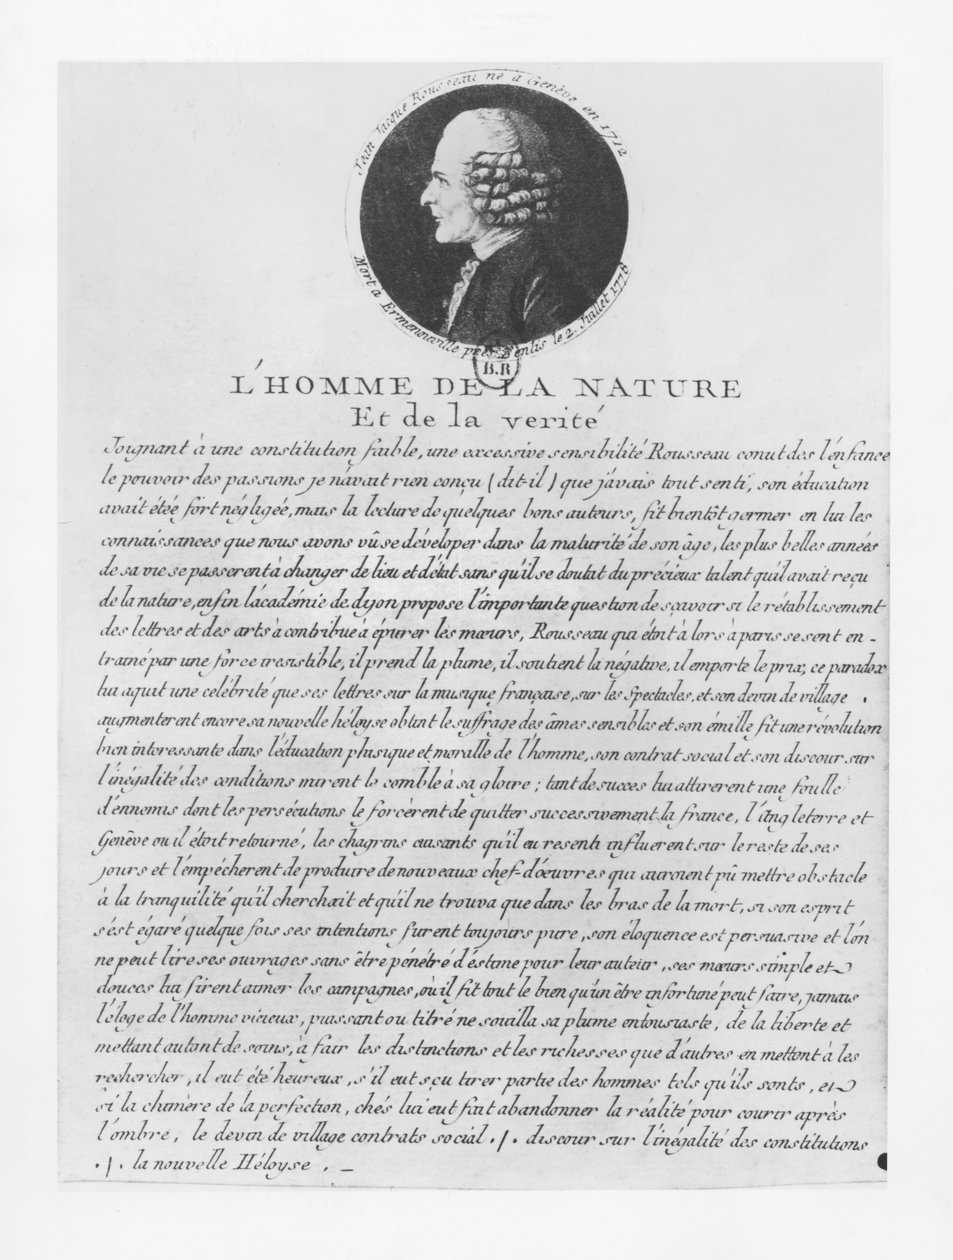 Jean Jaique Rousseau né à Genève en 1712
Mort a Ermenonville près Senlis le 2. Juillet 1778
B.R
L'HOMME DE LA NATURE
Et de la verité
Joignant à une constitution faible, une excessive sensibilité Rousseau conut des l'énfance
le pouvoir des passions je n'avait rien conçu (dit-il) que j'avais tout senti, son éducation
avait étée fort négligée, mais la lecture de quelques bons auteurs, fit bientôt germer en lui les
connaissances que nous avons vû se développer dans la maturité de son âge, les plus belles années
de sa vie se passerent à changer de lieu et d'état sans qu'il se doutat du précieux talent qu'il avait reçu
de la nature, enfin l'académie de dyon propose l'importante question de sçavoir si le rétablissement
des lettres et des arts à contribué à épurer les mœurs, Rousseau qui étoit à lors à paris se sent en-
trainé par une force iresistible, il prend la plume, il soutient la négative, il emporte le prix, ce paradox
lui aquit une célébrité que ses lettres sur la musique française, sur les Spectacles, et son devin de village .
augmenterent encore sa nouvelle héloyse obtint le suffrage des âmes sensibles et son émille fit une révolution
bien interessante dans l'éducation phisique et moralle de l'homme, son contrat social et son discour sur
l'inégalité des conditions mirent le comble à sa gloire ; tant de succes lui attirerent une foulle
d'énnemis dont les persécutions le forcèrent de quitter successivement la france, l'angleterre et
Genêve ou il étoit retourné, les chagrins cuisants qu'il eu resenti influerent sur le reste de ses
jours et l'empécherent de produire de nouveaux chef-d'oeuvres qui auroient pû mettre obstacle
à la tranquilité qu'il cherchait et qu'il ne trouva que dans les bras de la mort, si son esprit
s'ést égaré quelque fois ses intentions furent toujours pure, son éloquence est persuasive et l'ón
ne peut lire ses ouvrages sans être pénétré d'éstime pour leur auteur, ses mœurs simple et
douces lui firent aimer les campagnes, où il fit tout le bien qu'un être infortuné peut faire, jamais
l'éloge de l'homme vicieux, puissant ou titré ne souilla sa plume entousiaste, de la liberte et
mettant autant de soins, à fuir les distinctions et les richesses que d'autres en mettent à les
rechercher, il eut été heureux, s'il eut sçu tirer partie des hommes tels qu'ils sonts, et
si la chimère de la perfection, chés lui eut fait abandonner la réalité pour courir après
l'ombre, le devin de village contrats social ./. discour sur l'inégalité des constitutions
./. la nouvelle Héloyse . _